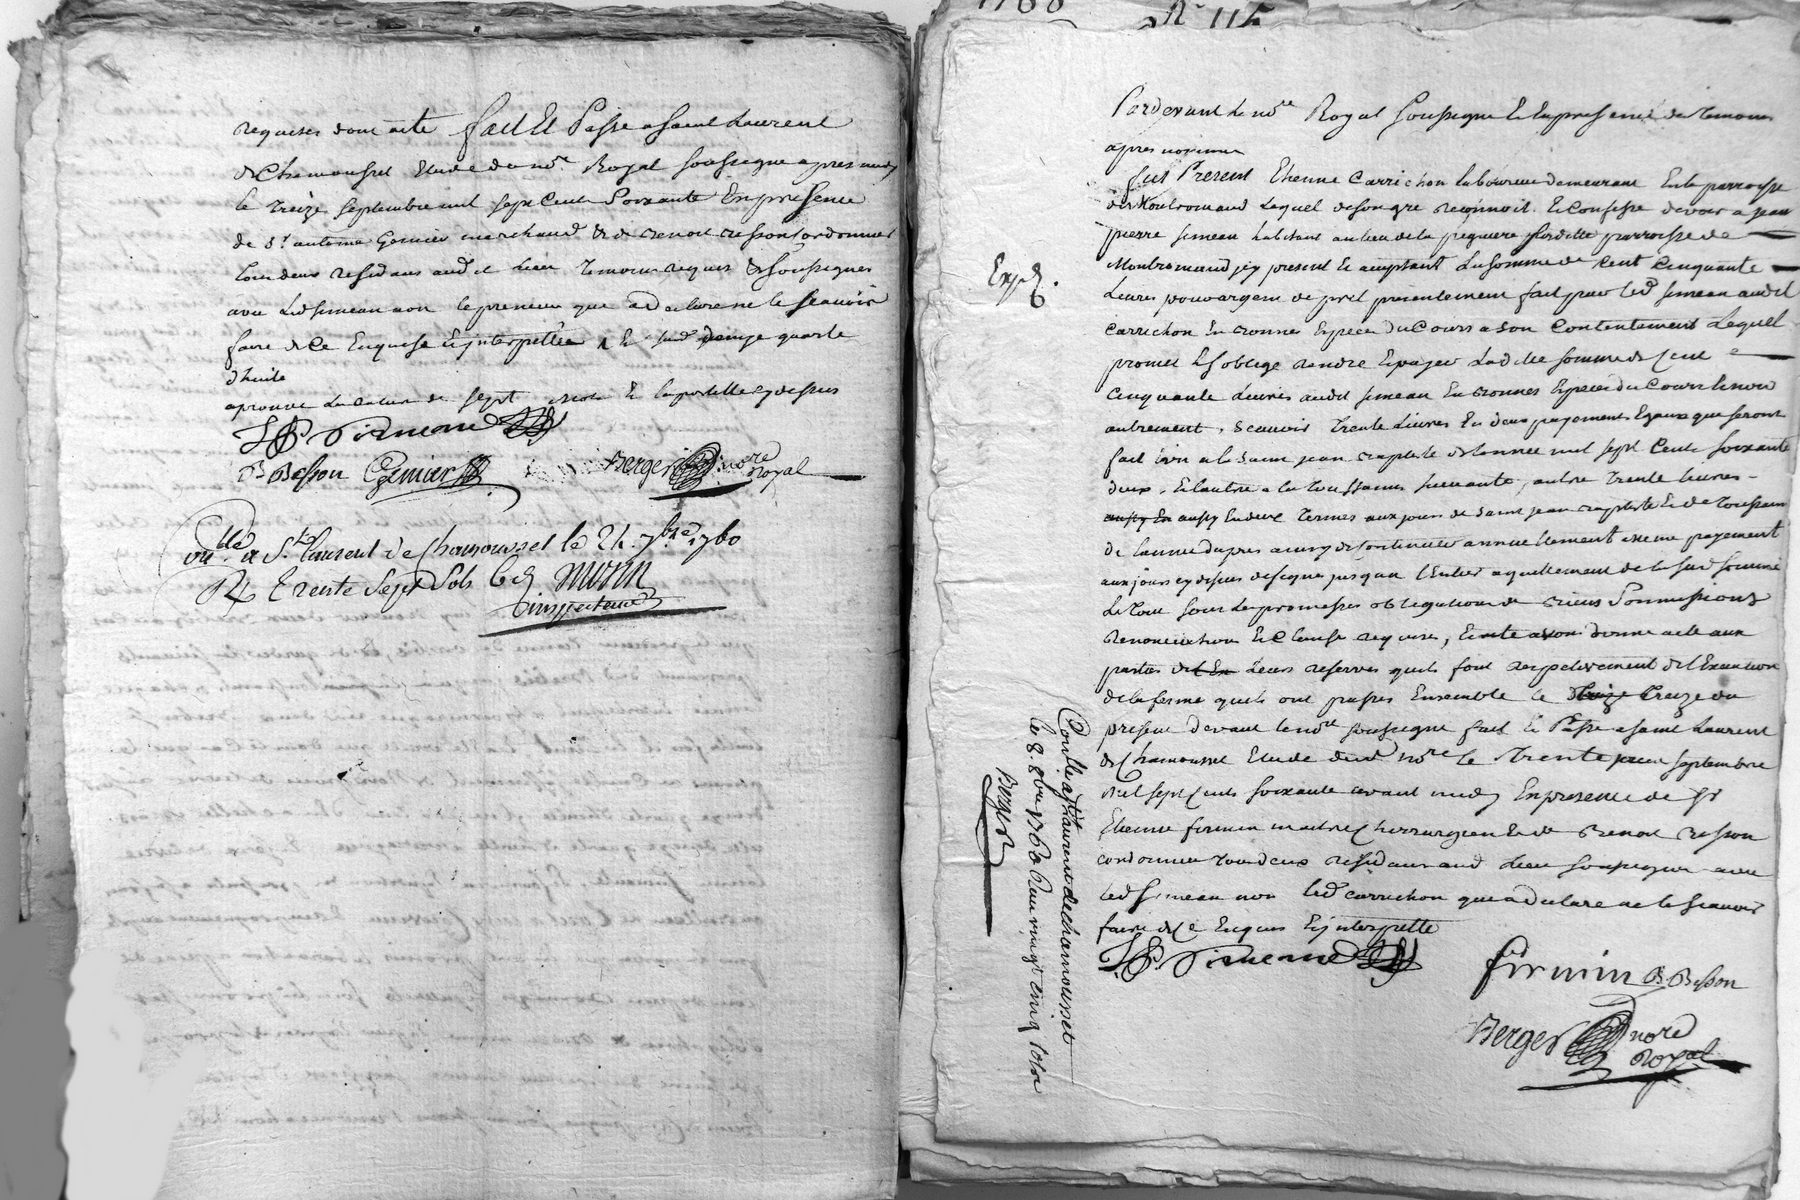 requises dont acte fait Et Passé a saint Laurent
de Chamousset Etude du nore Royal soussigné apres midy
le treize septembre mil sept Cent Soixante En presence
de Sr antoine Grenier marchand & de Benoit Besson Cordonnier
tous deux residans aud it Lieu temoins requis & soussignes
avec led simean non le preneur que a declare ne le sçavoir
faire de Ce Enquise & interpellée & sud demye quarte
d'huile
aprouve La rature de sept mots & l'apostille cy dessus
JP Simeand
B Besson Grenier Berger nore Royal
Conllé a St Laurent de Chamousset le 24. 7bre 1760
R Trente sept sols 6 d Morin
inspecteur
1760 N 115
Pardevant Le nore Royal soussigné Et En presence des temoins
apres nommes
fut Present Etienne Carrichon laboureur demeurant En la parroisse
de Montromand Lequel de son gre reconnoit Et Confesse devoir a Jean
pierre simean habitant au lieu de la susditte parroisse de
Montromand icy present Et acceptant La somme de Cent Cinquante
Livres pour argent de pret presentement fait par led simean audit
Carrichon En bonnes Especes du Cours a son Contentement Lequel
promet Et s'oblige rendre Et payer Laditte somme de Cent
Cinquante Livres audit simean En bonnes Especes du Cours & non
autrement, sçavoir trente Livres En deux payements Egaux que seront
fait l'un a la saint jean Baptiste de l'année mil sept Cent soixante
deux, Et l'autre a la toussaint suivante, autre trente livres
aussy En aussy En deux termes aux jours de saint jean Baptiste & de toussaint
de l'année d'apres ainsy de Continuer annuellement meme payement
aux jours cy dessus designes jusqu'au l'Entier aquittement de la sud somme
Le tout sous Les promesses obligations de biens soumissions
Renonciation & Clauses requises, donné acte aux
parties de Leurs reserves qu'ils font respectivement de l'Execution
de la ferme qu'ils ont passes Ensemble le treize du
present devant le nore soussigné fait & Passé a saint Laurent
de Chamousset Etude dud nore le trente septembre
Mil sept Cents soixante avant midy En presence de Sr
Etienne firmin maitre Chirurgien & de Benoit Besson
cordonnier tous deux residans aud Lieu soussignes avec
led simean non led carrichon que a declare ne le sçavoir
faire de Ce Enquis & interpellé
JP Simeand firmin B Besson
Berger nore Royal
Exp.
Conllé a St Laurent de chamousset
le 8. 8bre 1760 Reçu vingt cinq sols
Berger